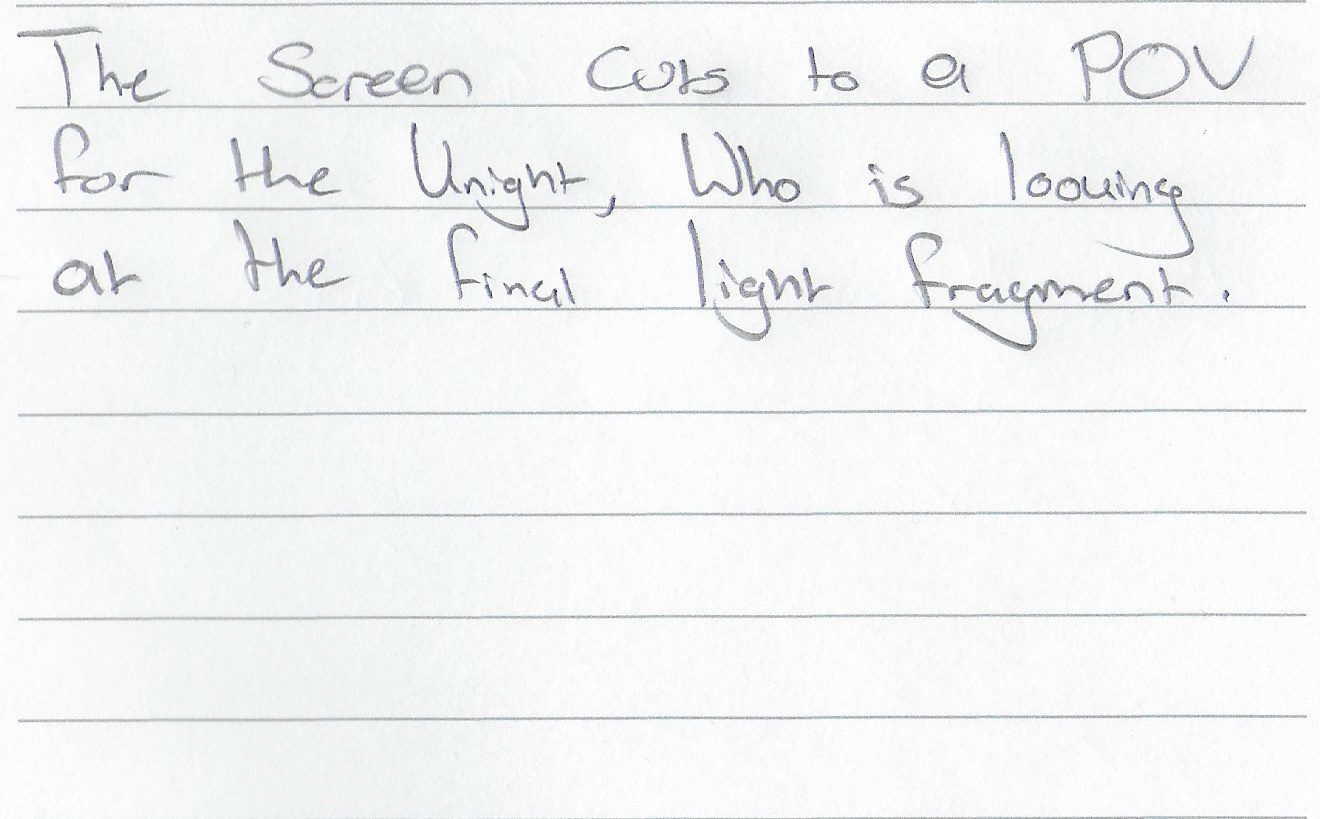 The Screen Cuts to a POV
for the Knight, Who is looking
at the final light fragment.